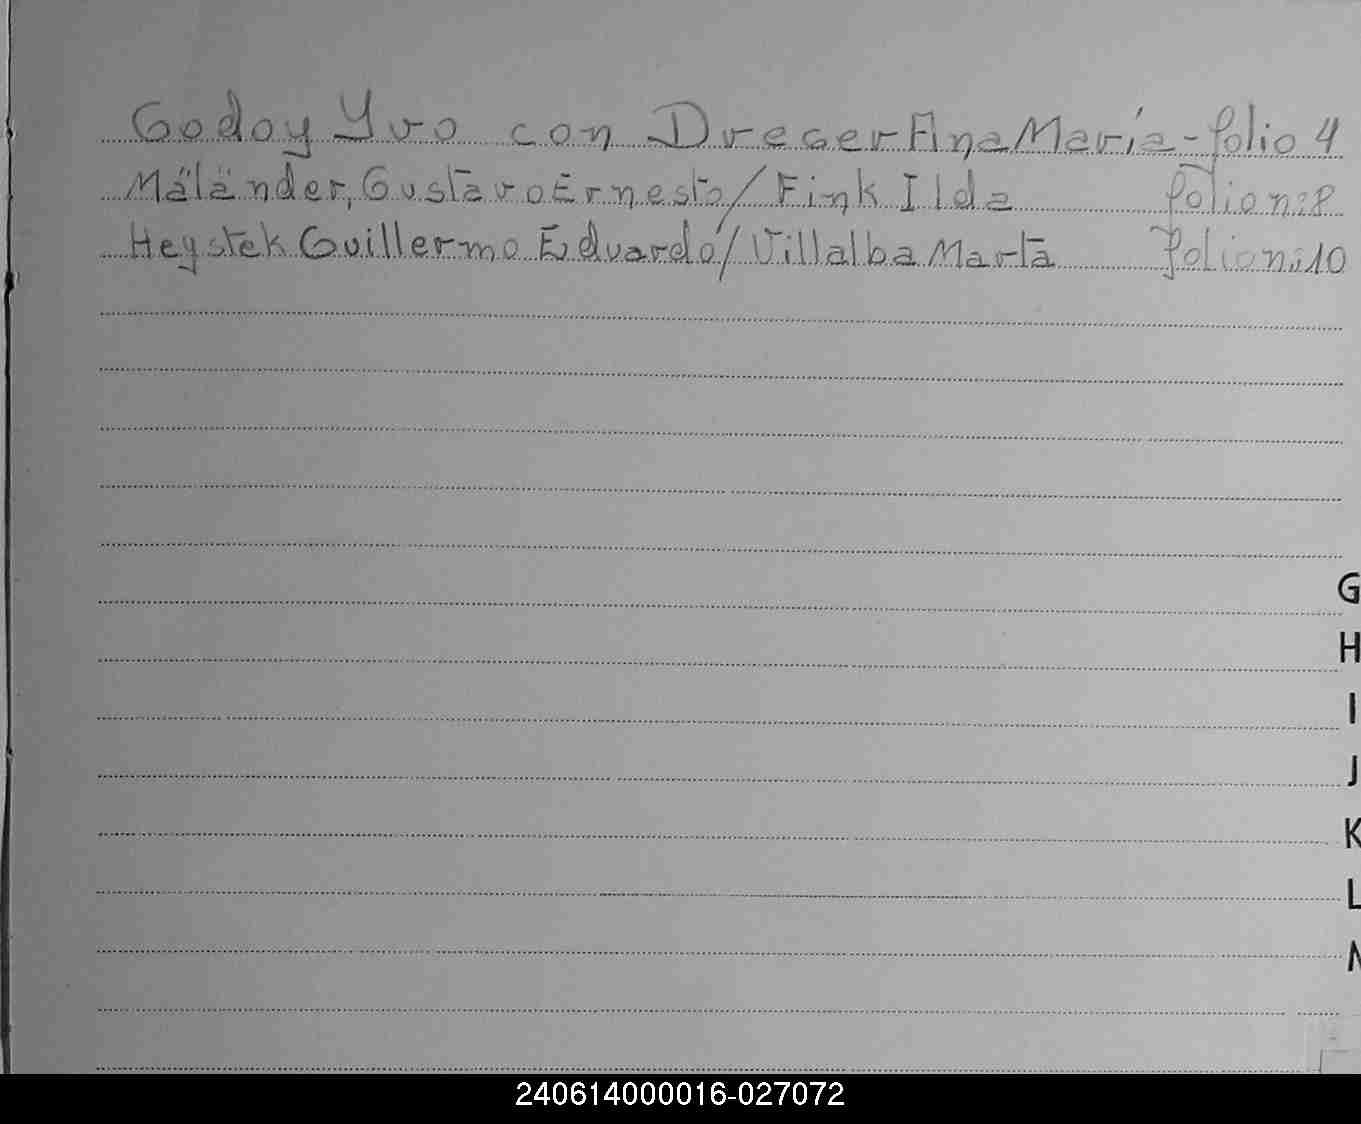 Godoy Yvo con Dreger Ana María - folio 4
Máländer, Gustavo Ernesto / Fink Ilda folio n: 8
Heystek Guillermo Eduardo / Villalba Marta folio n: 10
G
H
I
J
K
L
240614000016-027072